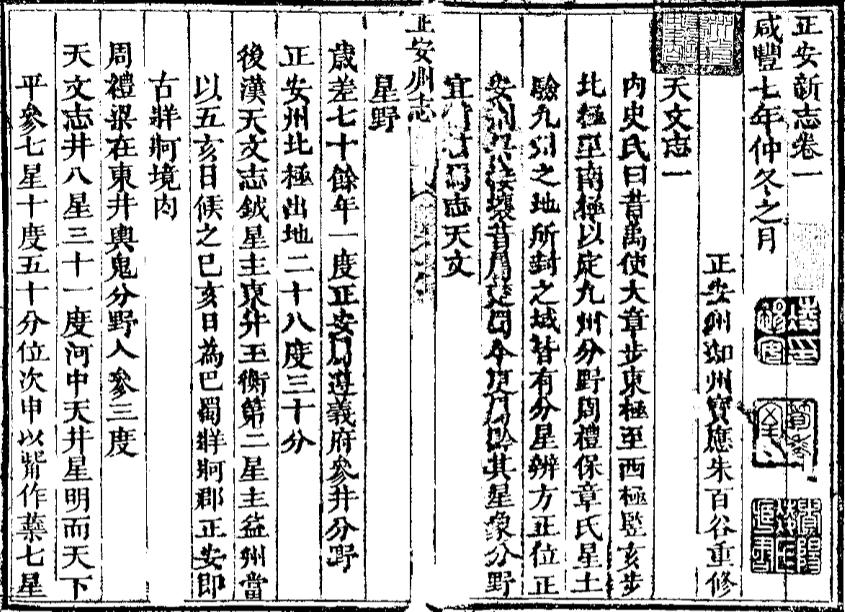 正安新志卷一
咸豐七年仲冬之月
正安州知州寶應朱百谷重修
天文志一
內史氏曰昔禹使大章步東極至西極豎亥步
北極至南極以定九州分野周禮保章氏星土
驗九州之地所封之域皆有分星辨方正位正
安州其星象分野
宜志天文
正安州志
星野
歲差七十餘年一度正安同遵義府參井分野
正安州北極出地二十八度三十分
後漢天文志鉞星主東井玉衡第二星主益州當
以五亥日候之巳亥日為巴蜀牂牁郡正安即
古牂牁境內
周禮梁在東井輿鬼分野入參三度
天文志井八星三十一度河中天井星明而天下
平參七星十度五十分位次申以觜作藥七星